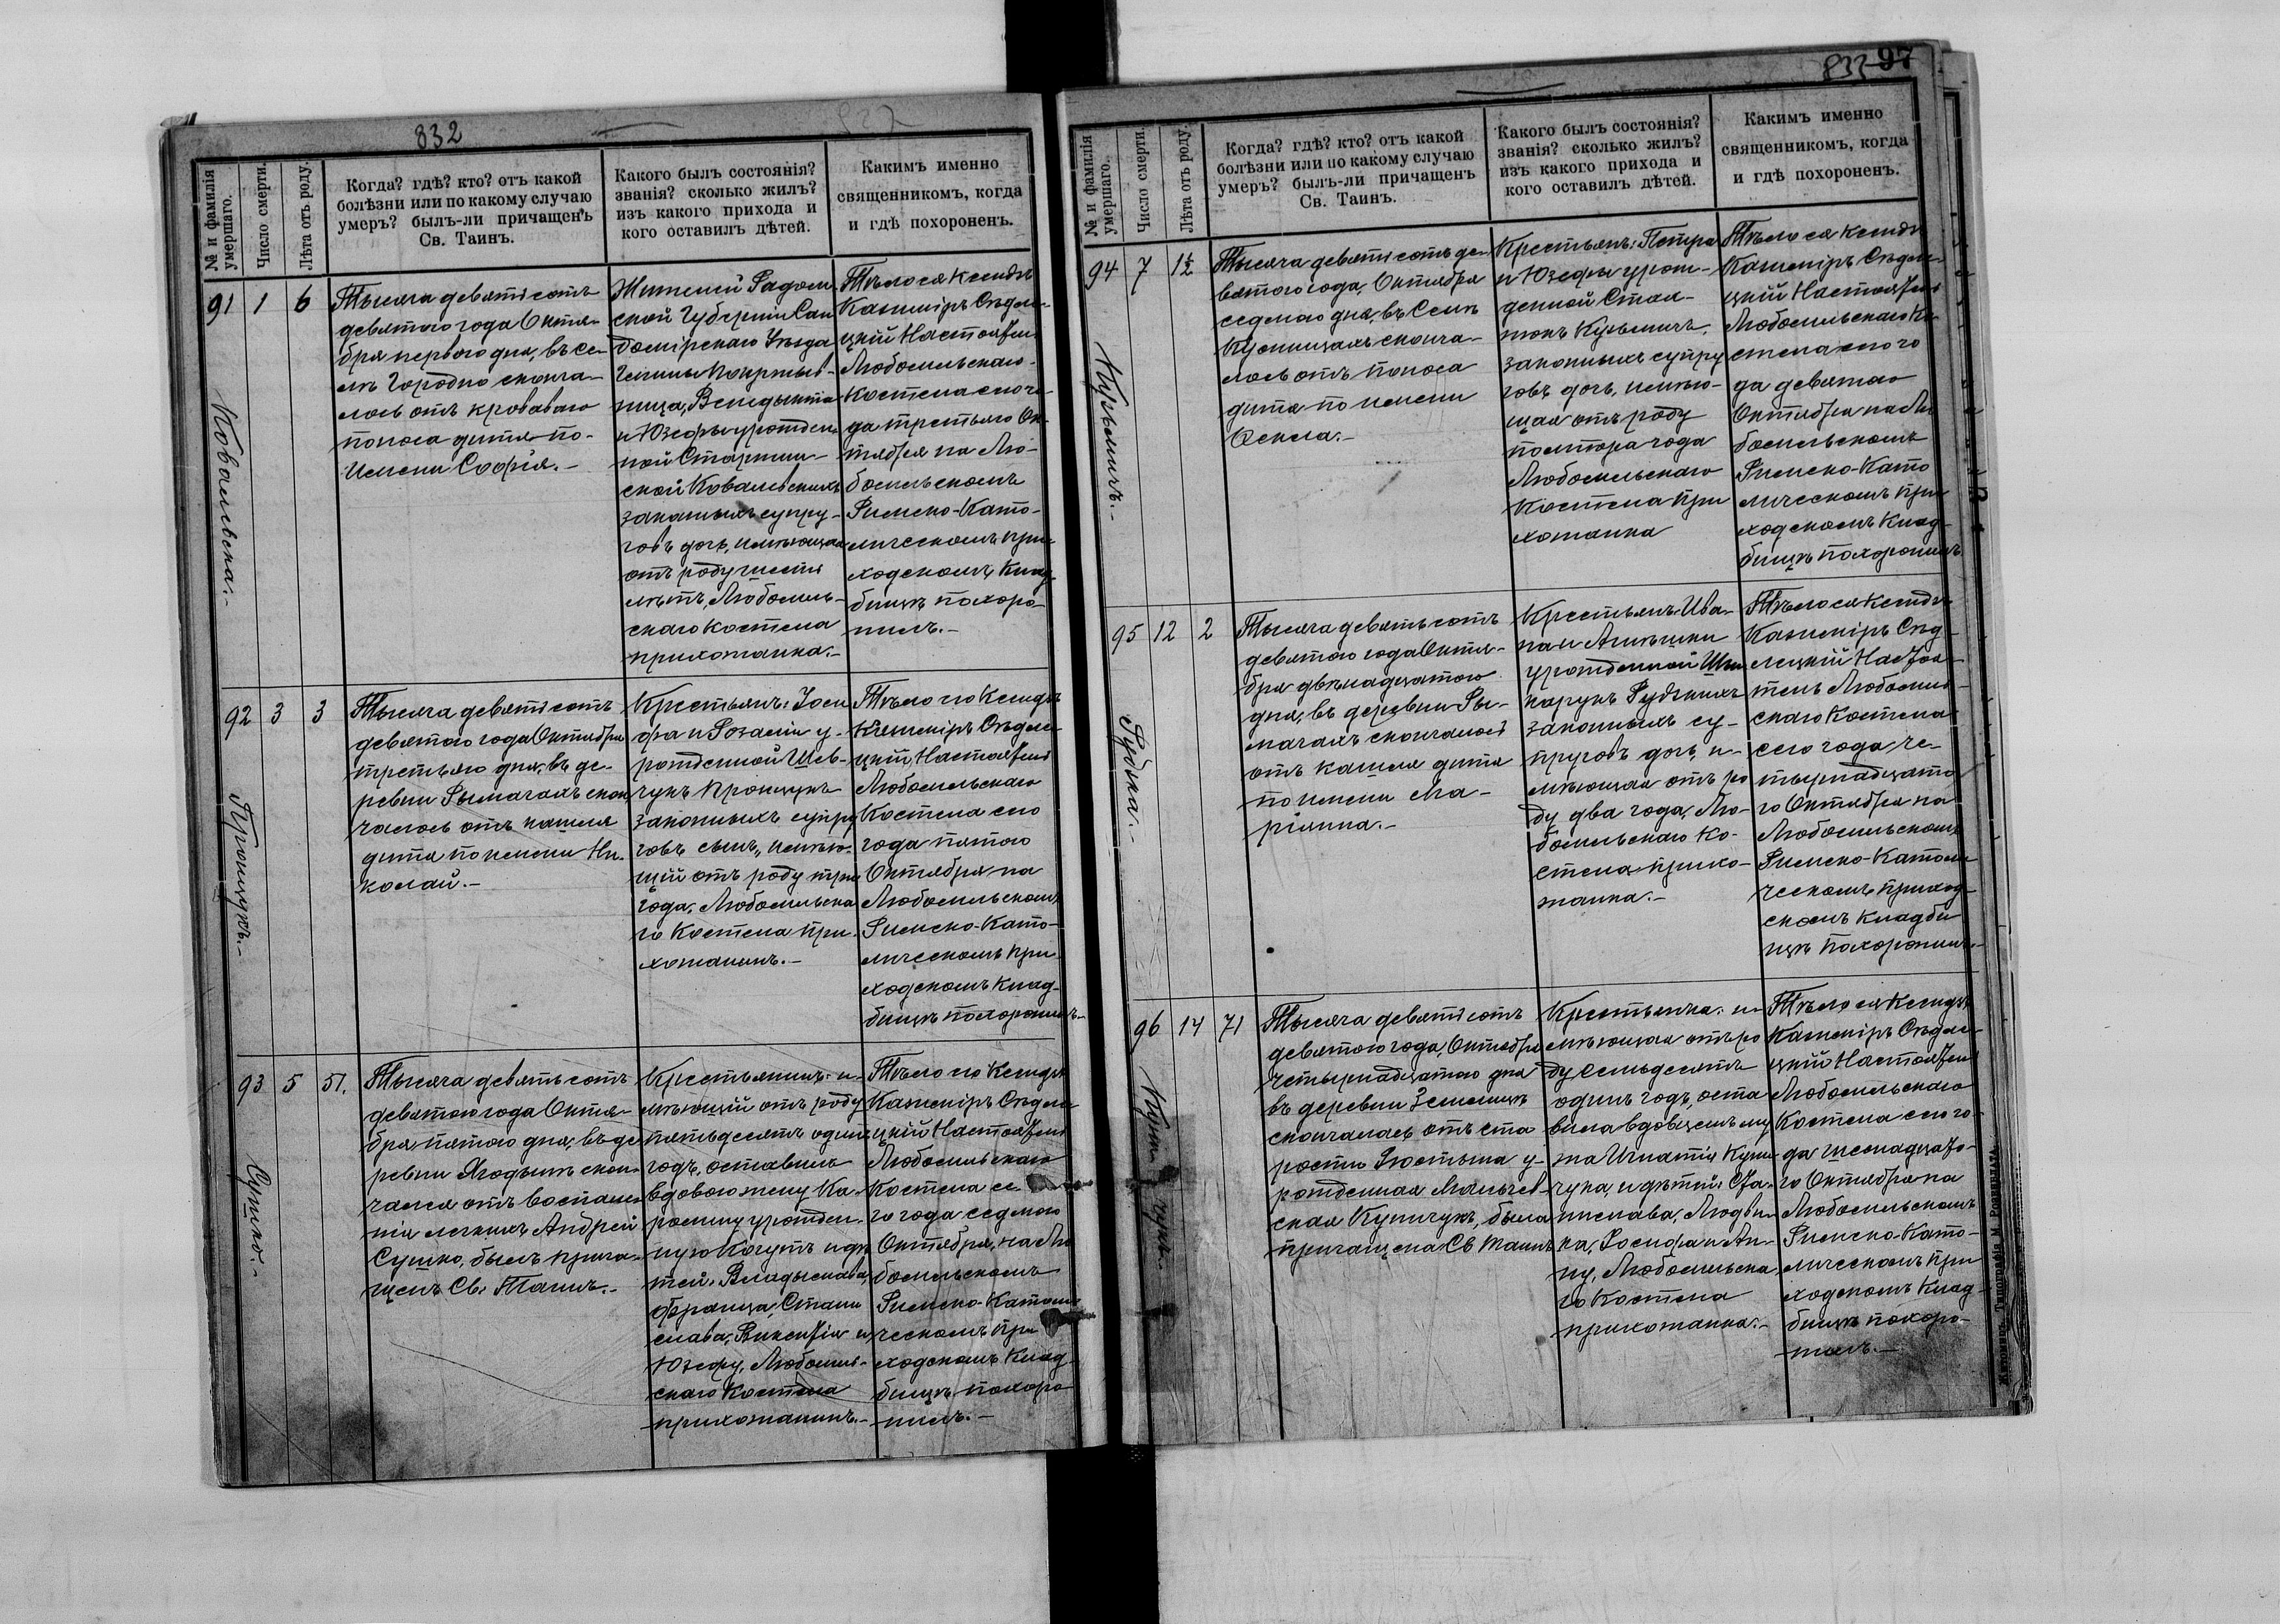 832
№ и фамилія умершаго.
Число смерти.
Лѣта отъ роду.
Когда? гдѣ? кто? отъ какой
болѣзни или по какому случаю
умеръ? былъ-ли причащенъ
Св. Таинъ.
Какого былъ состоянія?
званія? сколько жилъ?
изъ какого прихода и
кого оставилъ дѣтей.
Каким именно
священникомъ, когда
и гдѣ похороненъ.
91
Ковальвска.-
1
6
Тысяча девятісотъ
девятого года Октя-
бря первого дня, въ се-
лѣ Городно сконча-
лось отъ кроваваго
поноса дитя по-
имени Софія.-
Жителей Радом
ской Губерніи Сан
домірскаго Уѣзда
Гмины
и Юзефы урожден
ной
ской Ковальскихъ
законныхъ супру-
говъ дочь, имѣющая
отъ роду шесть
лѣтъ, Любомль-
скаго костела
прихожанка.-
Тѣло ея Ксендзъ
Казиміръ Сѣдле-
цкій Настоятель
Любомльскаго
Костела сего го-
да третьяго Ок-
тября на Лю-
бомльскомъ
Римско-Като-
лическомъ при-
ходскомъ клад-
бищѣ похоро-
нилъ.-
92
Пронцукъ.-
3
3
Тысяча девятісотъ
девятого года Октября
третьяго дня, въ де-
ревни Рымачахъ скон
чалось отъ кашля
дитя по имени Ни-
колай.-
Крестьянъ: Іоси
фа и Розаліи у-
рожденной Шев-
чукъ Пронцукъ
законныхъ супру
говъ сынъ, имѣю-
щій отъ роду три
года, Любомльска
го Костела при-
хожанинъ.-
Тѣло го Ксендзъ
Казиміръ Сѣдле-
цкій Настоятель
Любомльскаго
Костела сего
года пятого
Октября на
Любомльскомъ
Римско-Като-
лическомъ при-
ходскомъ клад-
бищѣ похоронилъ.-
93
Сушко.-
5
51.
Тысяча девятьсотъ
девятого года Октя-
бря пятого дня, въ де
ревни Ягодынѣ скон-
чался отъ воспале-
нія легкихъ Андрей
Сушко, былъ прича-
щенъ Св. Таинъ.-
Крестьянинъ: и-
мѣющій отъ роду
пятьдесятъ одинъ
годъ, оставилъ
вдовою жену Ка-
ролину урожден-
ную Когутъ и дѣ
тей: Владыслава,
Франца, Стани
слава, Викентія и
Юзефу, Любомль-
скаго костела
прихожанинъ.-
Тѣло го Ксендзъ
Казиміръ Сѣдле-
цкій Настоятель
Любомльскаго
Костела се
го года седмого
Октября, на Лю
бомльскомъ
Римско-Католи
ческомъ при
ходскомъ клад-
бищѣ похоро-
нилъ.-
97
№ и фамилія умершаго.
Число смерти.
Лѣта отъ роду.
Когда? гдѣ? кто? отъ какой
болѣзни или по какому случаю
умеръ? былъ-ли причащенъ
Св. Таинъ.
Какого былъ состоянія?
званія? сколько жилъ?
изъ какого прихода и
кого оставилъ дѣтей.
Какимъ именно
священникомъ, когда
и гдѣ похороненъ.
94
Кузьмичъ.-
7
1½
Тысяча девятісотъ де-
вятого года, Октября
седмого дня, въ Селѣ
Куснищахъ сконча-
лось отъ поноса
дитя по имени
Текла.-
Крестьянъ: Петра
и Юзефы урож-
денной
Кузьмичъ,
законныхъ супру
говъ дочь, имѣю-
щая отъ роду
полтора года
Любомльскаго
Костела при
хожанка
Тѣло ея Ксендзъ
Казиміръ Сѣдле-
цкій Настоятель
Любомльскаго Ко
стела сего го
да девятаго
Октября на Лю
бомльскомъ
Римско-Като
лическомъ при
ходскомъ клад-
бищѣ похоронилъ
95
Рудзка.-
12
2
Тысяча девятьсотъ
девятого года Октя-
бря двѣнадцатого
дня, въ деревни Ры-
мачахъ скончалось
отъ кашля дитя
по имени Ма-
ріянна.-
Крестьянъ: Ива-
на и Агнѣшки
урожденной
Рудзкихъ
законныхъ су-
пруговъ дочь, и-
мѣющая отъ ро
ду два года, Лю-
бомльскаго Ко-
стела прихо-
жанка.-
Тѣло ея Ксендзъ
Казиміръ Сѣд-
лецкій Настоя-
тель Любомль-
скаго Костела
сего года че-
тырнадцато
го Октября на
Любомльскомъ
Римско-Католи
ческомъ приход-
скомъ кладби
щѣ похоронилъ.-
96
14
71
Тысяча девятісотъ
девятого года, Октября
четырнадцатого дня
въ деревни Землицѣ
скончалась отъ ста
рости Юстына у-
рожденная
ская Купичукъ, была
причащена Св Таинъ
Крестьянка: и-
мѣющая отъ ро
ду семьдесятъ
одинъ годъ, оста
вила вдовцемъ му
жа Игнатія Купи-
чука, и дѣтей: Ста-
нислава, Людви-
ка, Іосифа и Ан-
ну, Любомльска
го Костела
прихожанка.-
Тѣло ея Ксендзъ
Казиміръ Сѣдле-
цкій Настоятель
Любомльскаго
Костела сего го-
да шеснадцато-
го Октября на
Любомльскомъ
Римско-Като-
лическомъ при
ходскомъ клад-
бищѣ похоро-
нилъ.-
Житомиръ. Типографія М. Розенблата.